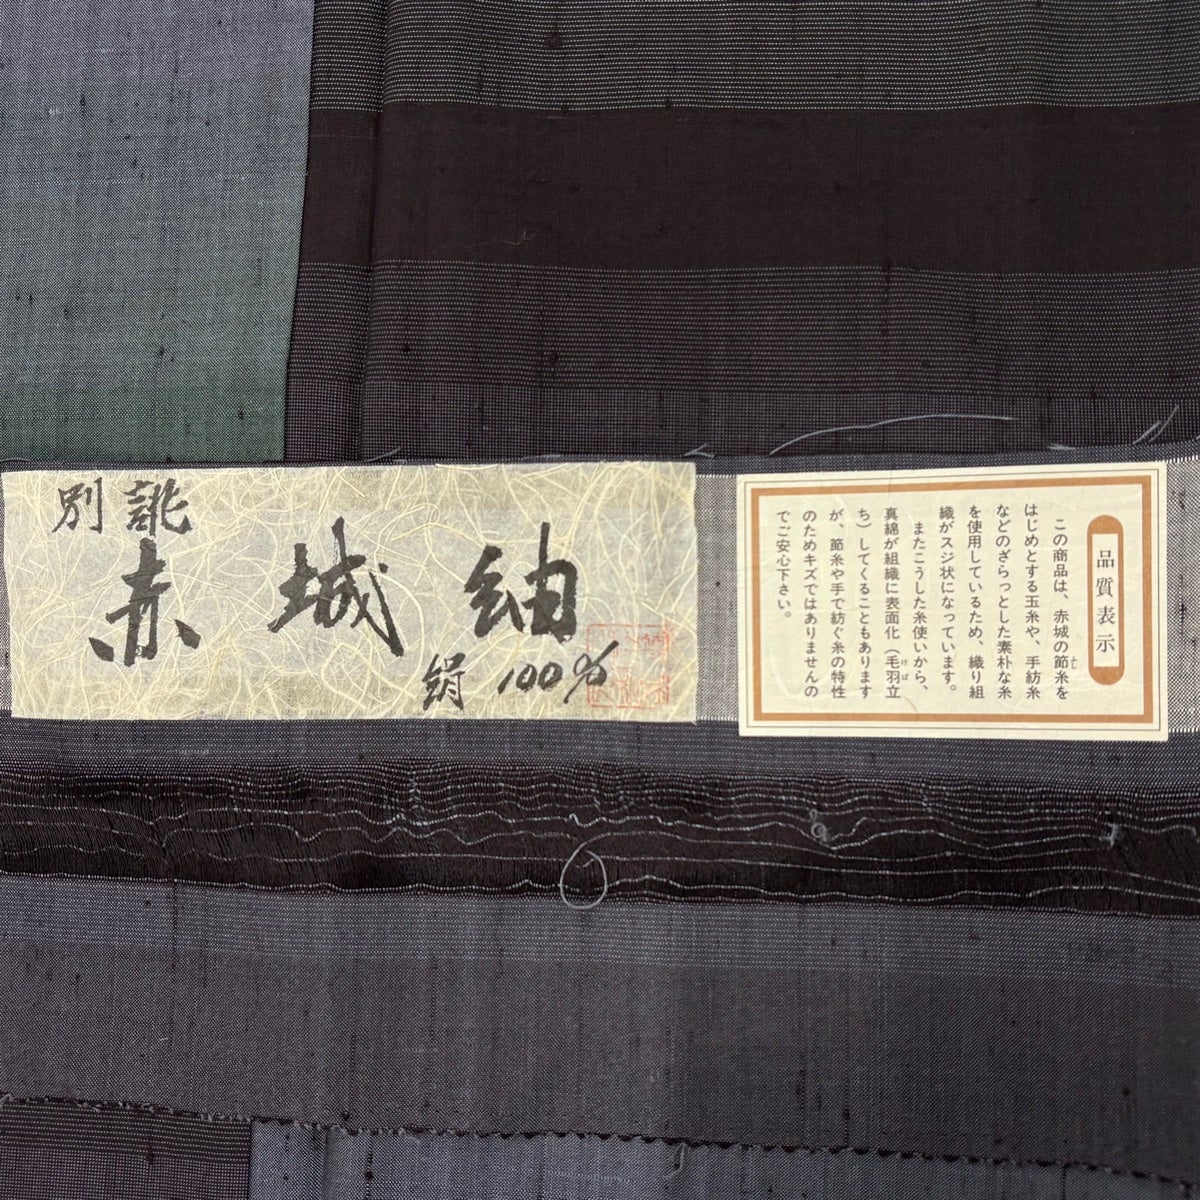 別誂
赤城紬
絹100%
品質表示
この商品は、赤城の節糸を
はじめとする玉糸や、手紡糸
などのざらっとした素朴な糸
を使用しているため、織り組
織がスジ状になっています。
またこうした糸使いから、
真綿が組織に表面化（毛羽立
ち）してくることもあります
が、節糸や手で紡ぐ糸の特性
のためキズではありませんの
でご安心下さい。